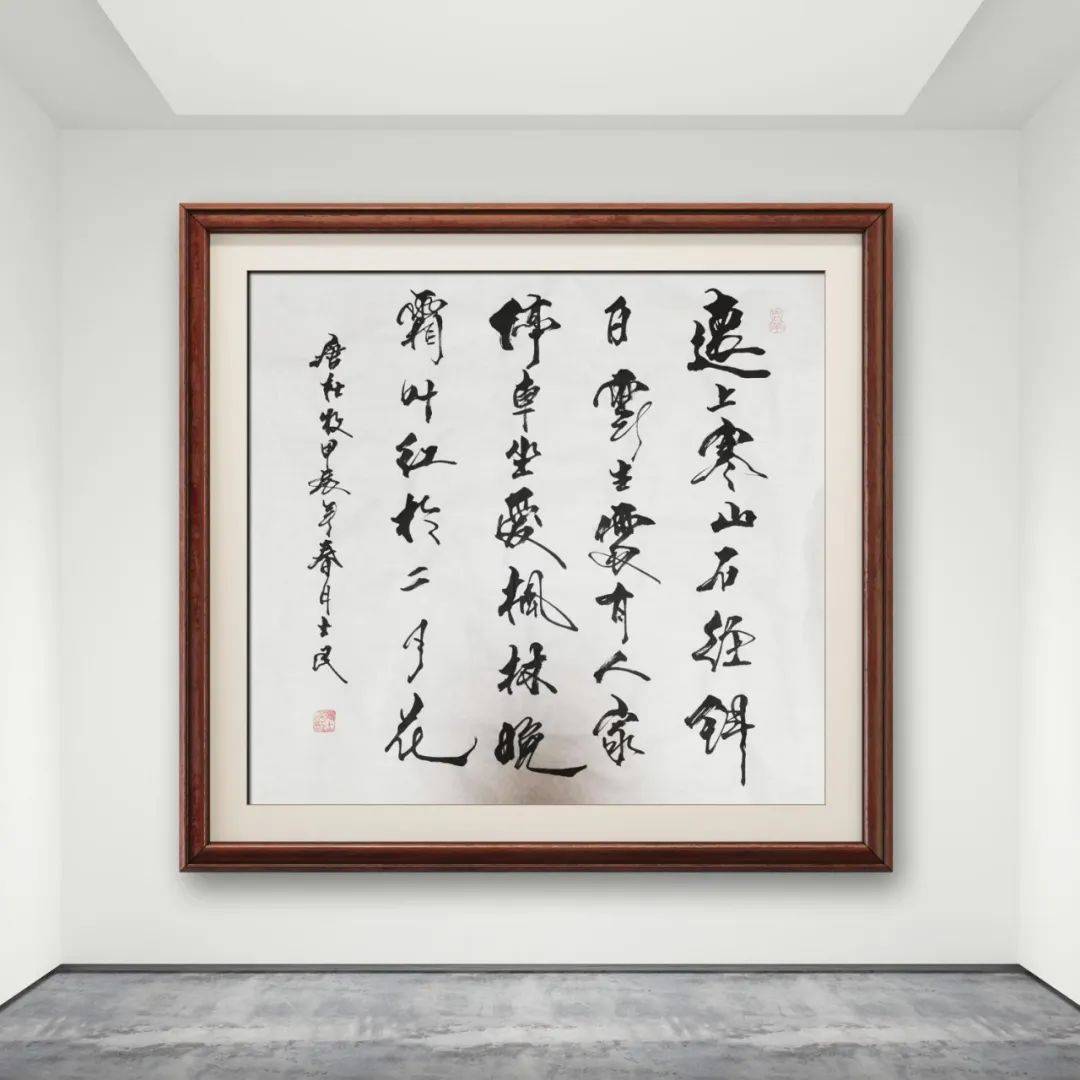 遠上寒山石徑斜
白雲生處有人家
停車坐愛楓林晚
霜叶紅於二月花
唐杜牧甲辰年春月士民